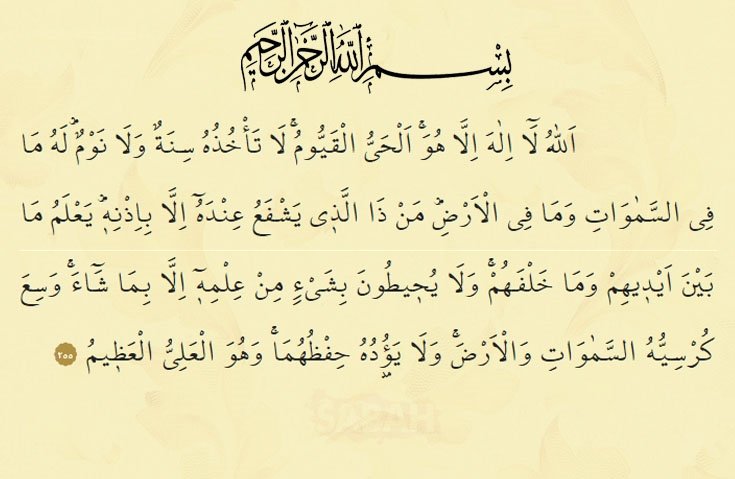 بِسْمِ اللّٰهِ الرَّحْمٰنِ الرَّحِيمِ
اَللّٰهُ لَٓا اِلٰهَ اِلَّا هُوَۚ اَلْحَيُّ الْقَيُّومُۚ لَا تَأْخُذُهُ سِنَةٌ وَلَا نَوْمٌۜ لَهُ مَا
فِى السَّمٰوَاتِ وَمَا فِى الْاَرْضِۜ مَنْ ذَا الَّذٖى يَشْفَعُ عِنْدَهُٓ اِلَّا بِاِذْنِهٖۜ يَعْلَمُ مَا
بَيْنَ اَيْدٖيهِمْ وَمَا خَلْفَهُمْۚ وَلَا يُحٖيطُونَ بِشَىْءٍ مِنْ عِلْمِهٖٓ اِلَّا بِمَا شَٓاءَۚ وَسِعَ
كُرْسِيُّهُ السَّمٰوَاتِ وَالْاَرْضَۚ وَلَا يَؤُ۫دُهُ حِفْظُهُمَاۚ وَهُوَ الْعَلِىُّ الْعَظٖيمُ ٢٥٥
SABAH